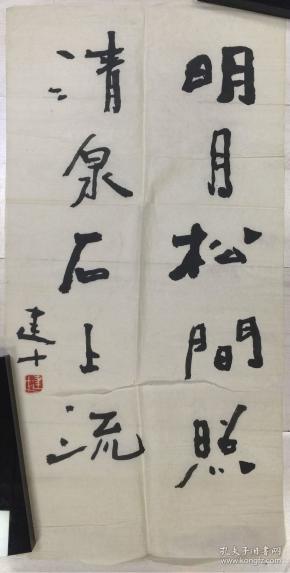 明月松間照
清泉石上流
建十
孔夫子旧书网
www.kongfz.com